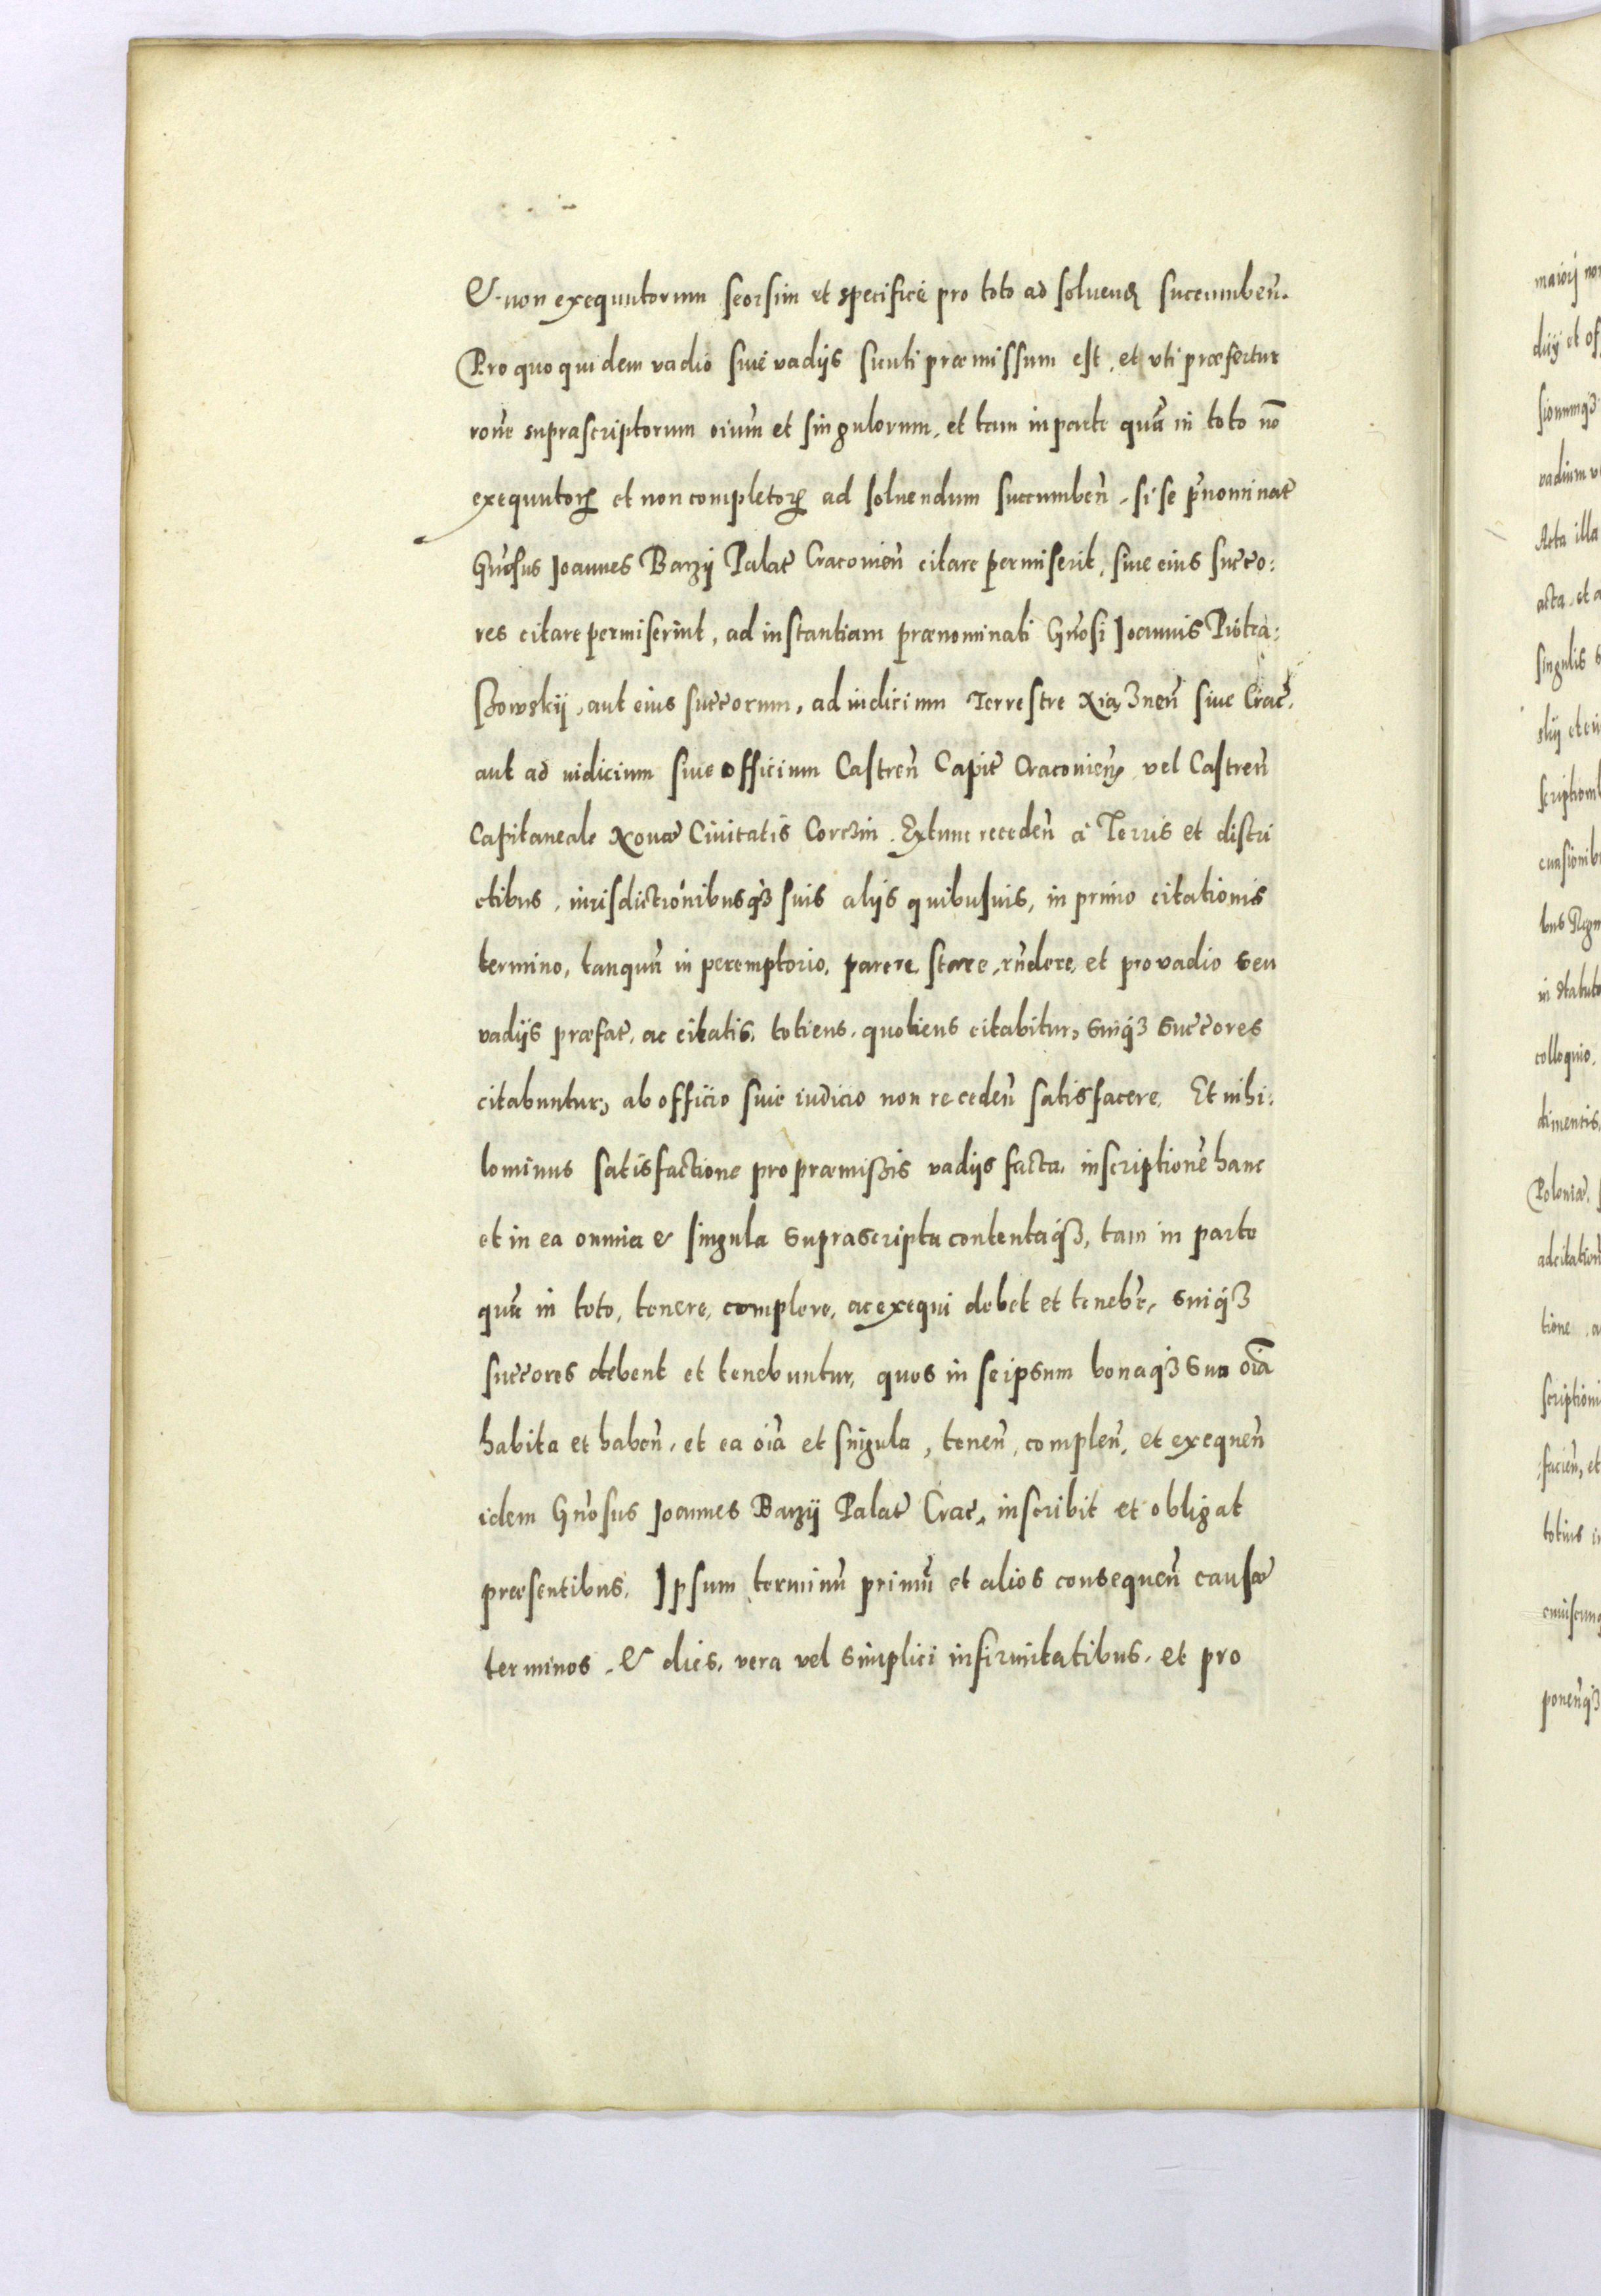 & non exequutorum seorsim et specificé pro toto ad soluend succumbeñ.
Pro quo quidem vadio siue vadijs sicuti præmissum est, et vti præfertur
roñe suprascriptorum oium̃ et singulorum, et tam in parte quã in toto nõ
exequutoꝝ et non completoꝝ ad soluendum succumbeñ, si se p̃nominat̃
Gñosus Joannes Barzij Palat̃ Cracouieñ citare permiserit, siue eius succo:
res citare permiserint, ad instantiam prænominati Gñosi Joannis Piotra:
szowskij, aut eius succorum, ad iudicium Terrestre Xiązneñ siue Crac̃,
aut ad iudicium siue officium Castreñ Capit̃ Cracouieñ, vel Castreñ
Capitaneale Nouæ Ciuitatis Corczin. Extunc recedeñ à Terris et distri
ctibus, iurisdictionibusqꝫ suis alijs quibusuis, in primo citationis
termino, tanquã in peremptorio, parere, stare, rñdere, et pro vadio seu
vadijs præfat̃, ac citatis, totiens, quotiens citabitur, suiqꝫ succores
citabuntur, ab officio siue iudicio non recedeñ satisfacere. Et nihi:
lominus satisfactione pro præmissis vadijs facta, inscriptionẽ hanc
et in ea omnia & singula suprascripta contentaqꝫ, tam in parte
quã in toto, tenere, complere, ac exequi debet et tenebr̃, suiqꝫ
succores debent et tenebuntur, quos in seipsum bonaqꝫ sua oĩa
habita et habeñ, et ea oĩa et singula, teneñ, compleñ, et exequeñ
idem Gñosus Joannes Barzij Palat̃ Crac̃, inscribit et obligat
præsentibus. Ipsum terminũ primũ et alios consequeñ causæ
terminos, & dies, vera vel simplici infirmitatibus, et pro